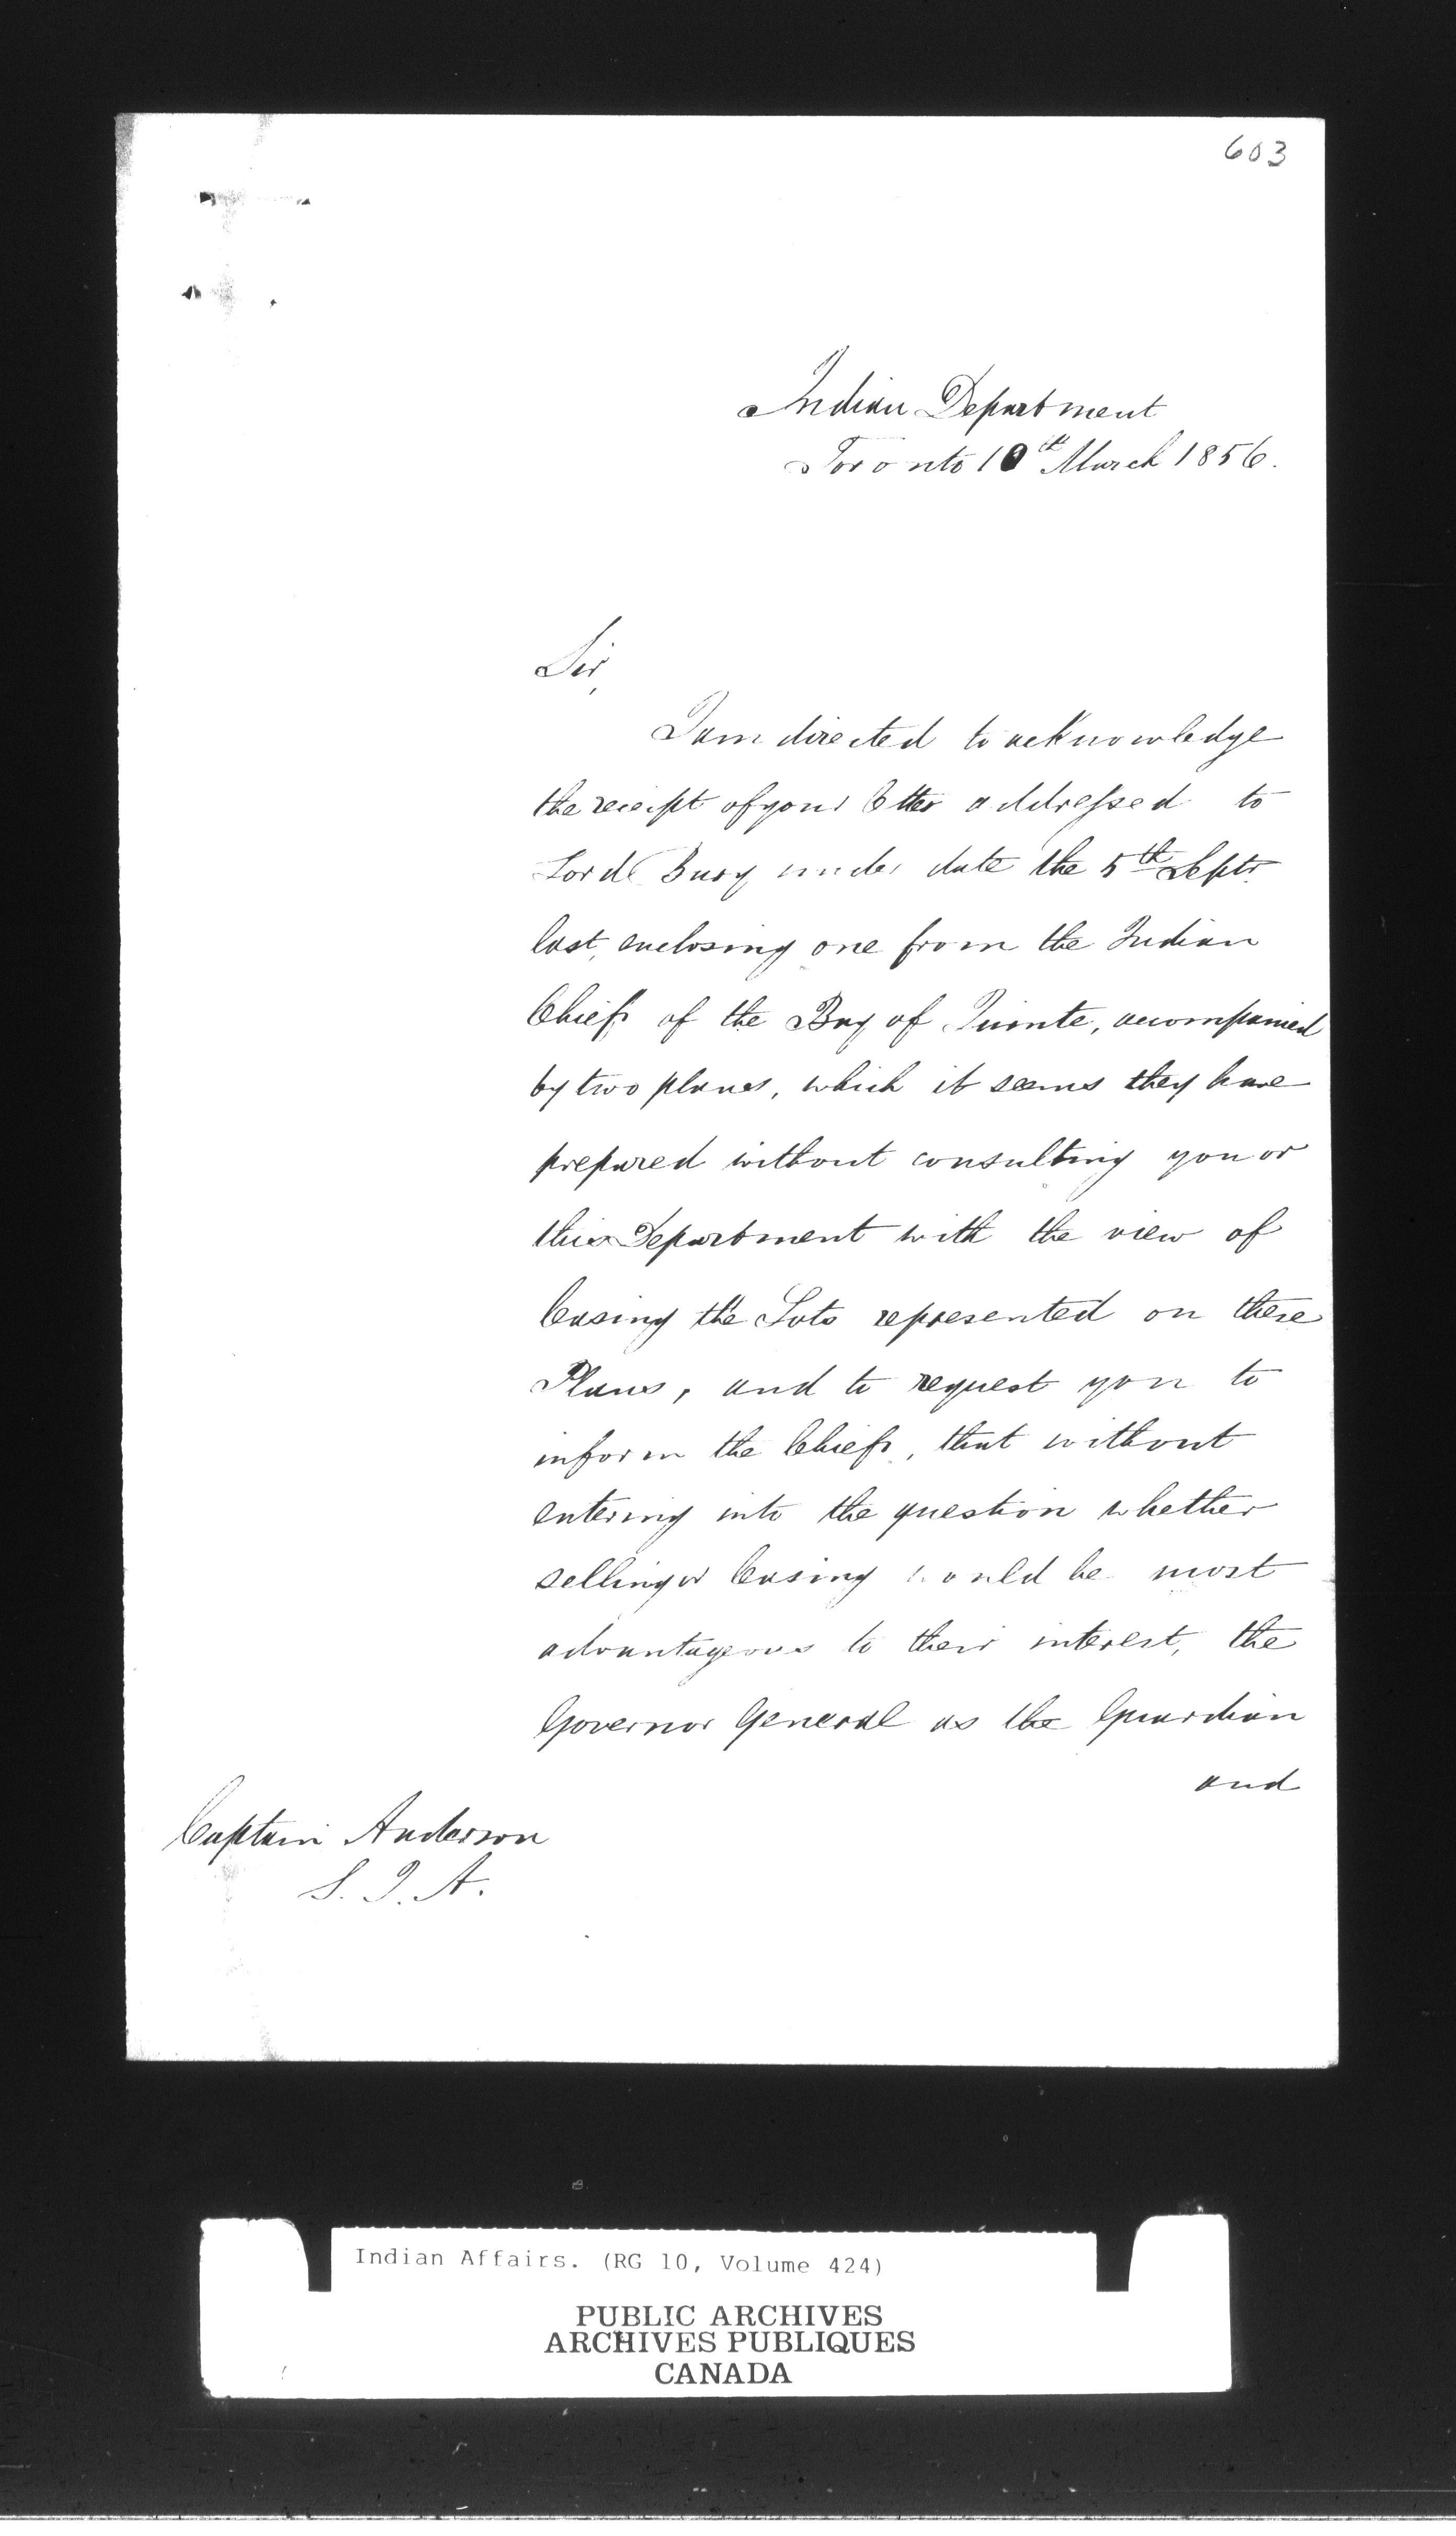 603
Indian Department
Toronto 10th March 1856.
Sir,
I am directed to acknowledge
the receipt of your letter addressed to
Lord Bury under date the 5th Septr
last, enclosing one from the Indian
Chiefs of the Bay of Quinte, accompanied
by two plans, which it seems they have
prepared without consulting you or
this Department with the view of
leasing the Lots represented on these
Plans, and to request you to
inform the Chiefs, that without
entering into the question whether
selling or leasing would be most
advantageous to their interest, the
Governor General as the Guardian
and
Captain Anderson
S. I. A.
Indian Affairs. (RG 10, Volume 424)
PUBLIC ARCHIVES
ARCHIVES PUBLIQUES
CANADA